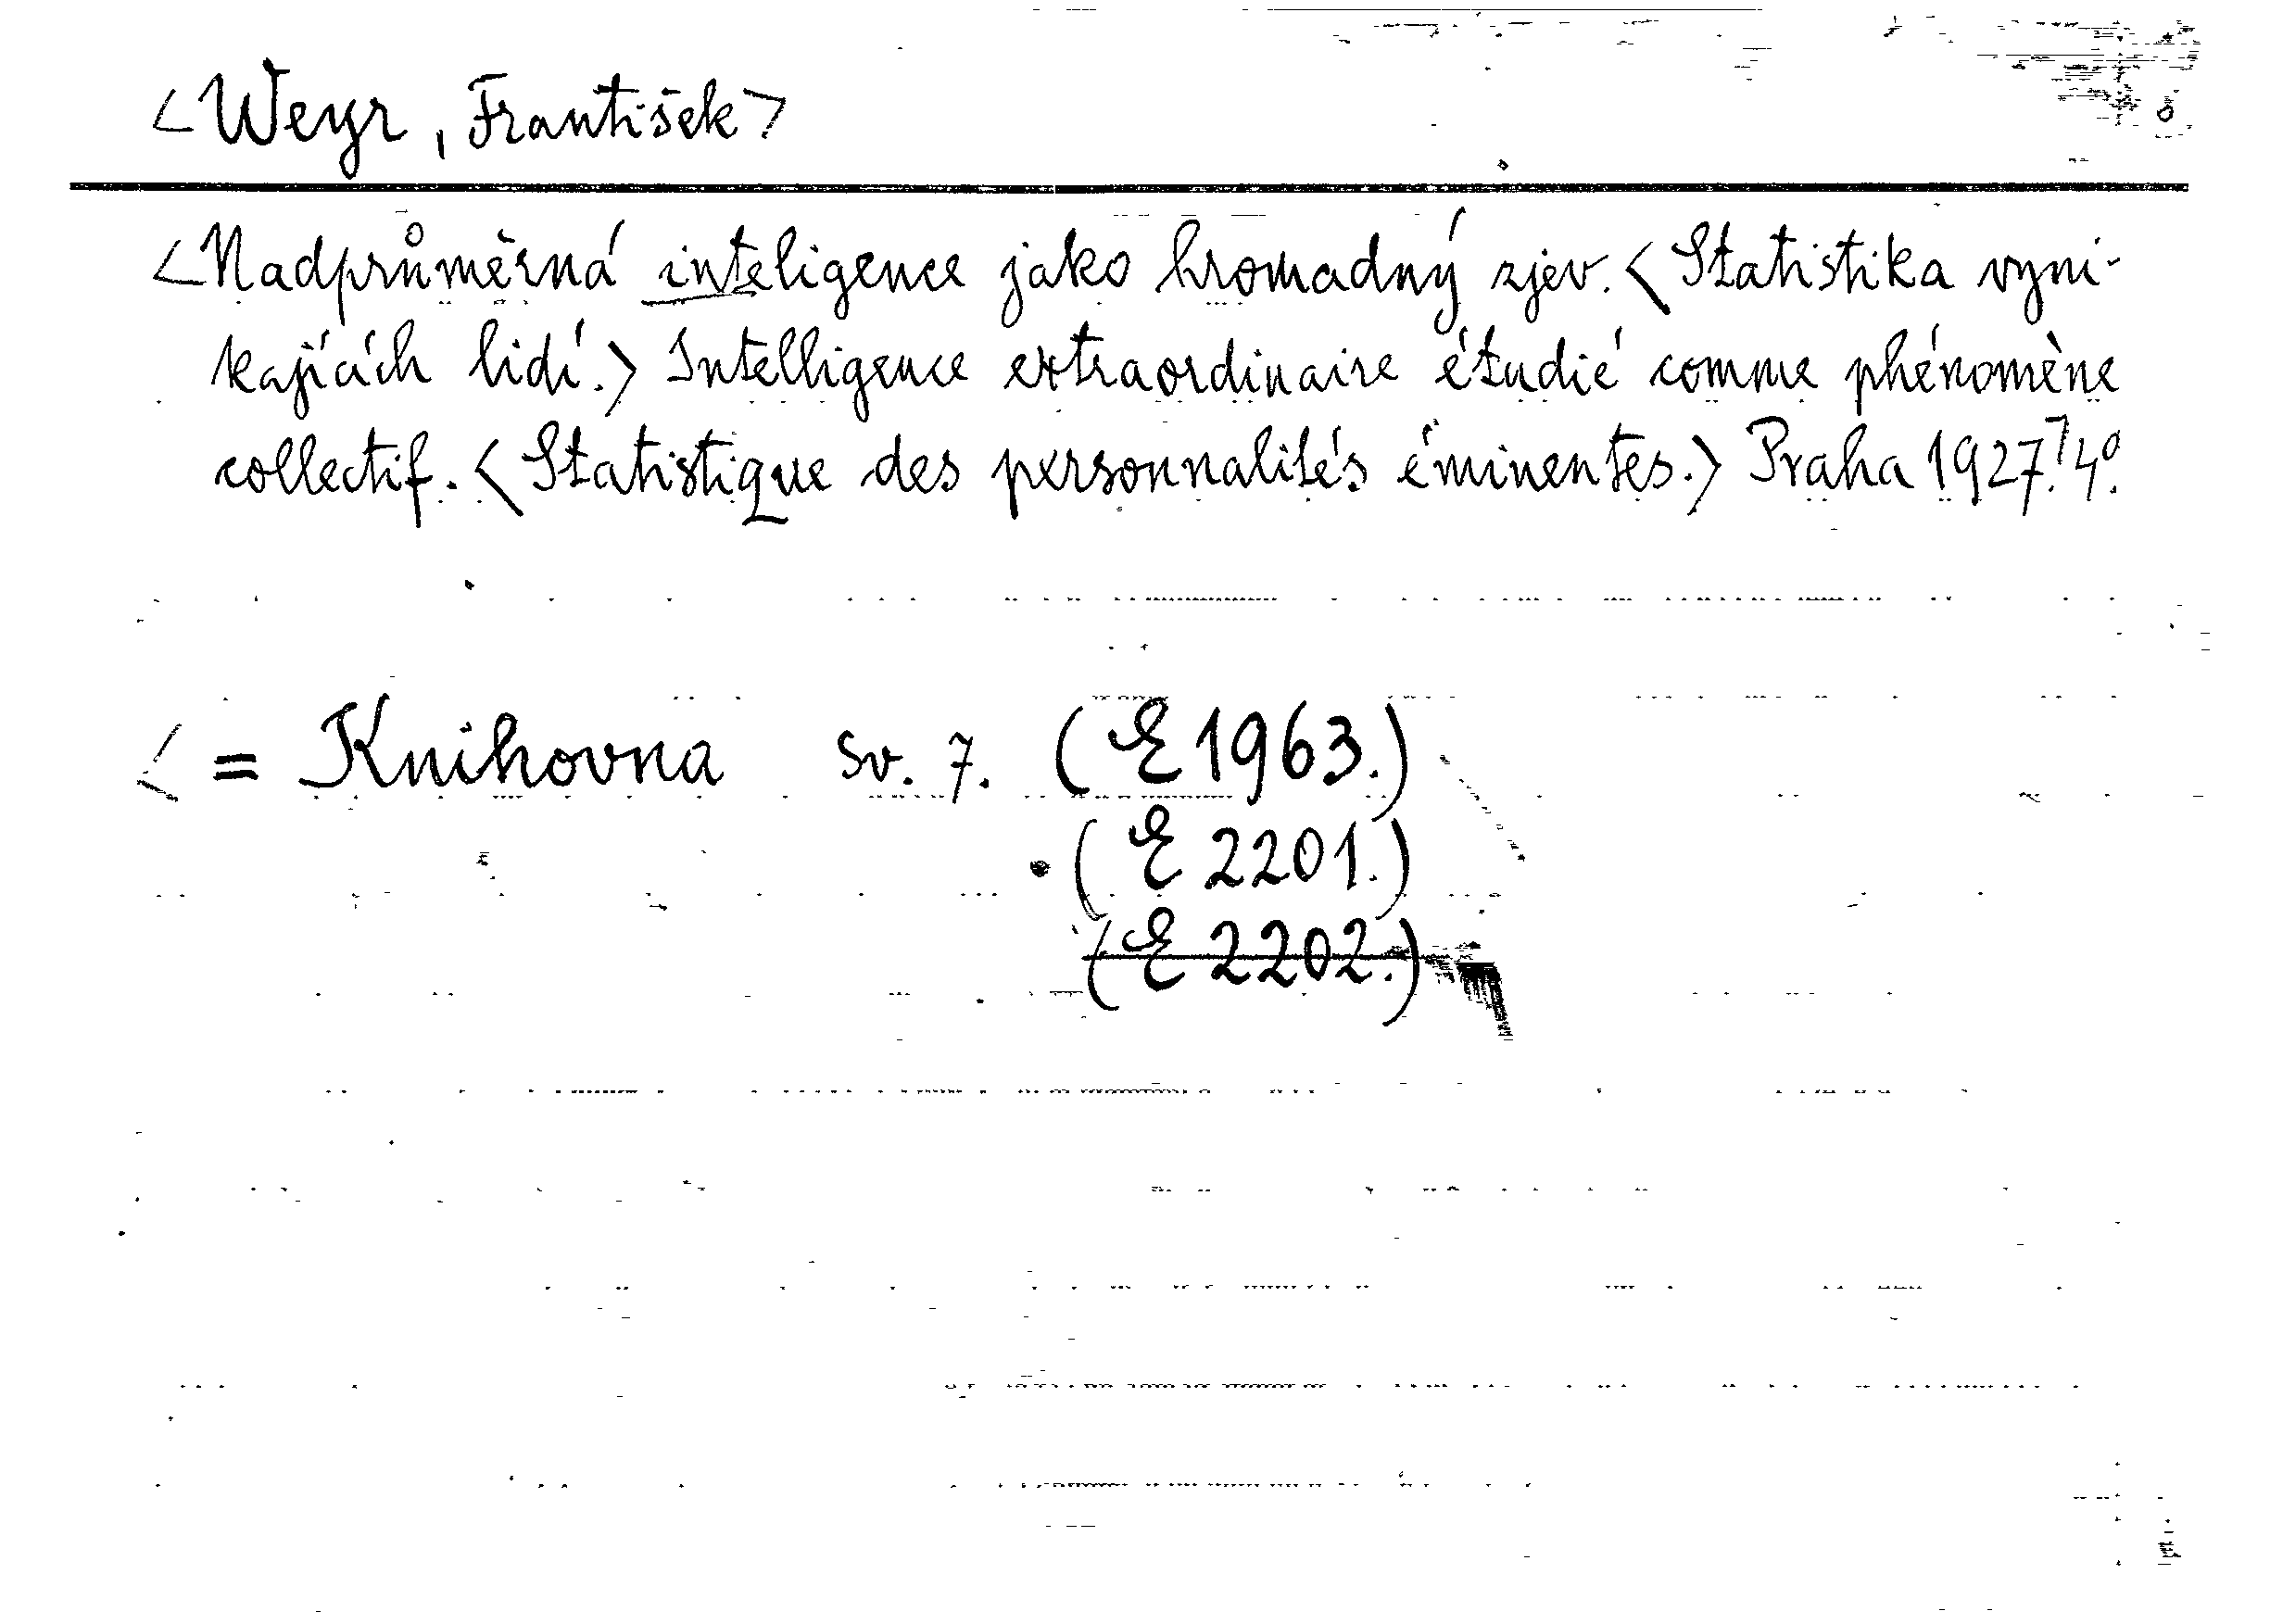 <Weyr, František>
<Nadprůměrná inteligence jako hromadný zjev. <Statistika vyni-
kajících lidí.> Intelligence extraordinaire étudié comme phénomène
collectif. <Statistique des personnalités éminentes.> Praha 1927. 4°.
< = Knihovna sv. 7. (E 1963.)
(E 2201.)
(E 2202.)